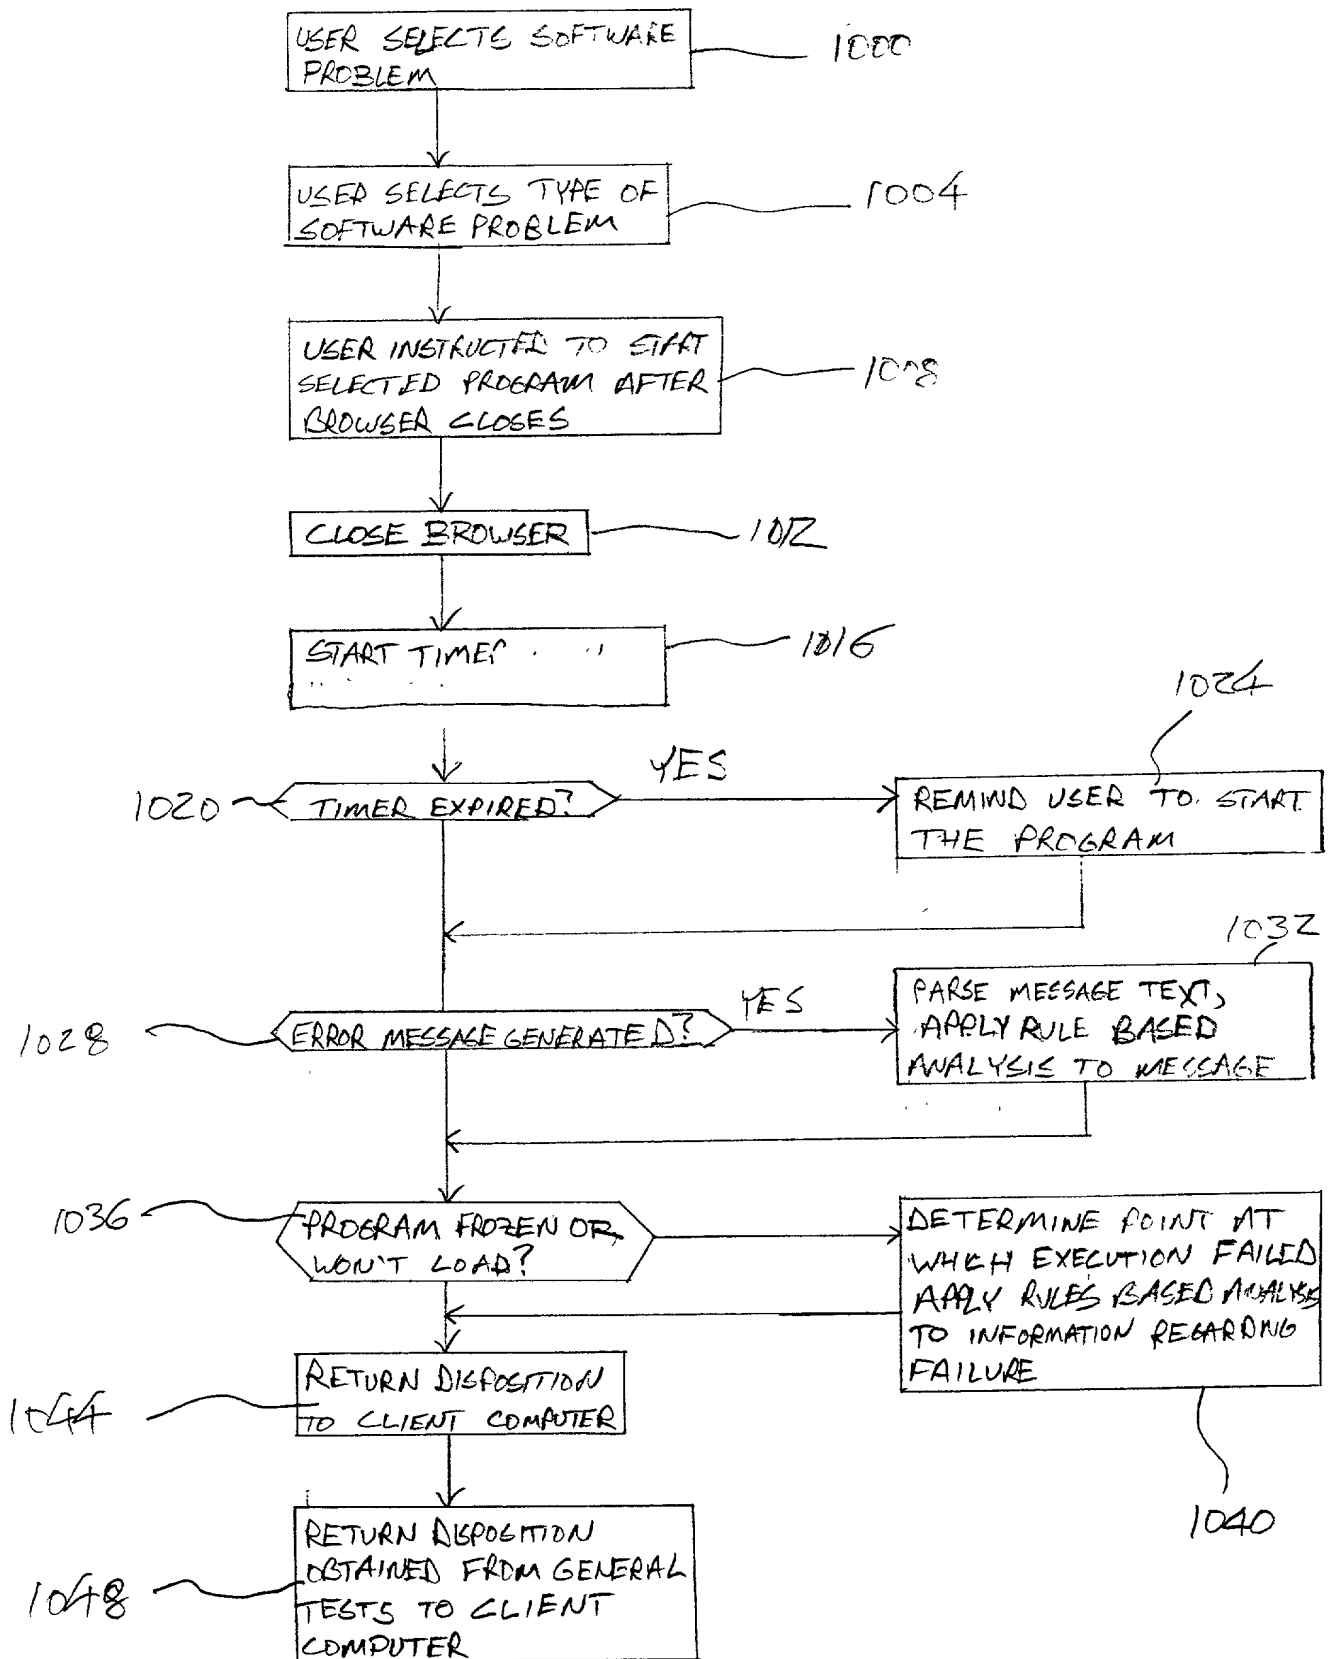 USER SELECTS SOFTWARE
PROBLEM
1000
USER SELECTS TYPE OF
SOFTWARE PROBLEM
1004
USER INSTRUCTED TO START
SELECTED PROGRAM AFTER
BROWSER CLOSES
1008
CLOSE BROWSER
1012
START TIMER
1016
1020
TIMER EXPIRED?
YES
1024
REMIND USER TO START
THE PROGRAM
1028
ERROR MESSAGE GENERATED?
YES
1032
PARSE MESSAGE TEXT,
APPLY RULE BASED
ANALYSIS TO MESSAGE
1036
PROGRAM FROZEN OR
WON'T LOAD?
DETERMINE POINT AT
WHICH EXECUTION FAILED
APPLY RULES BASED ANALYSIS
TO INFORMATION REGARDING
FAILURE
1040
1044
RETURN DISPOSITION
TO CLIENT COMPUTER
1048
RETURN DISPOSITION
OBTAINED FROM GENERAL
TESTS TO CLIENT
COMPUTER